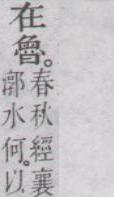 在魯。
春秋經襄
郭水何。以